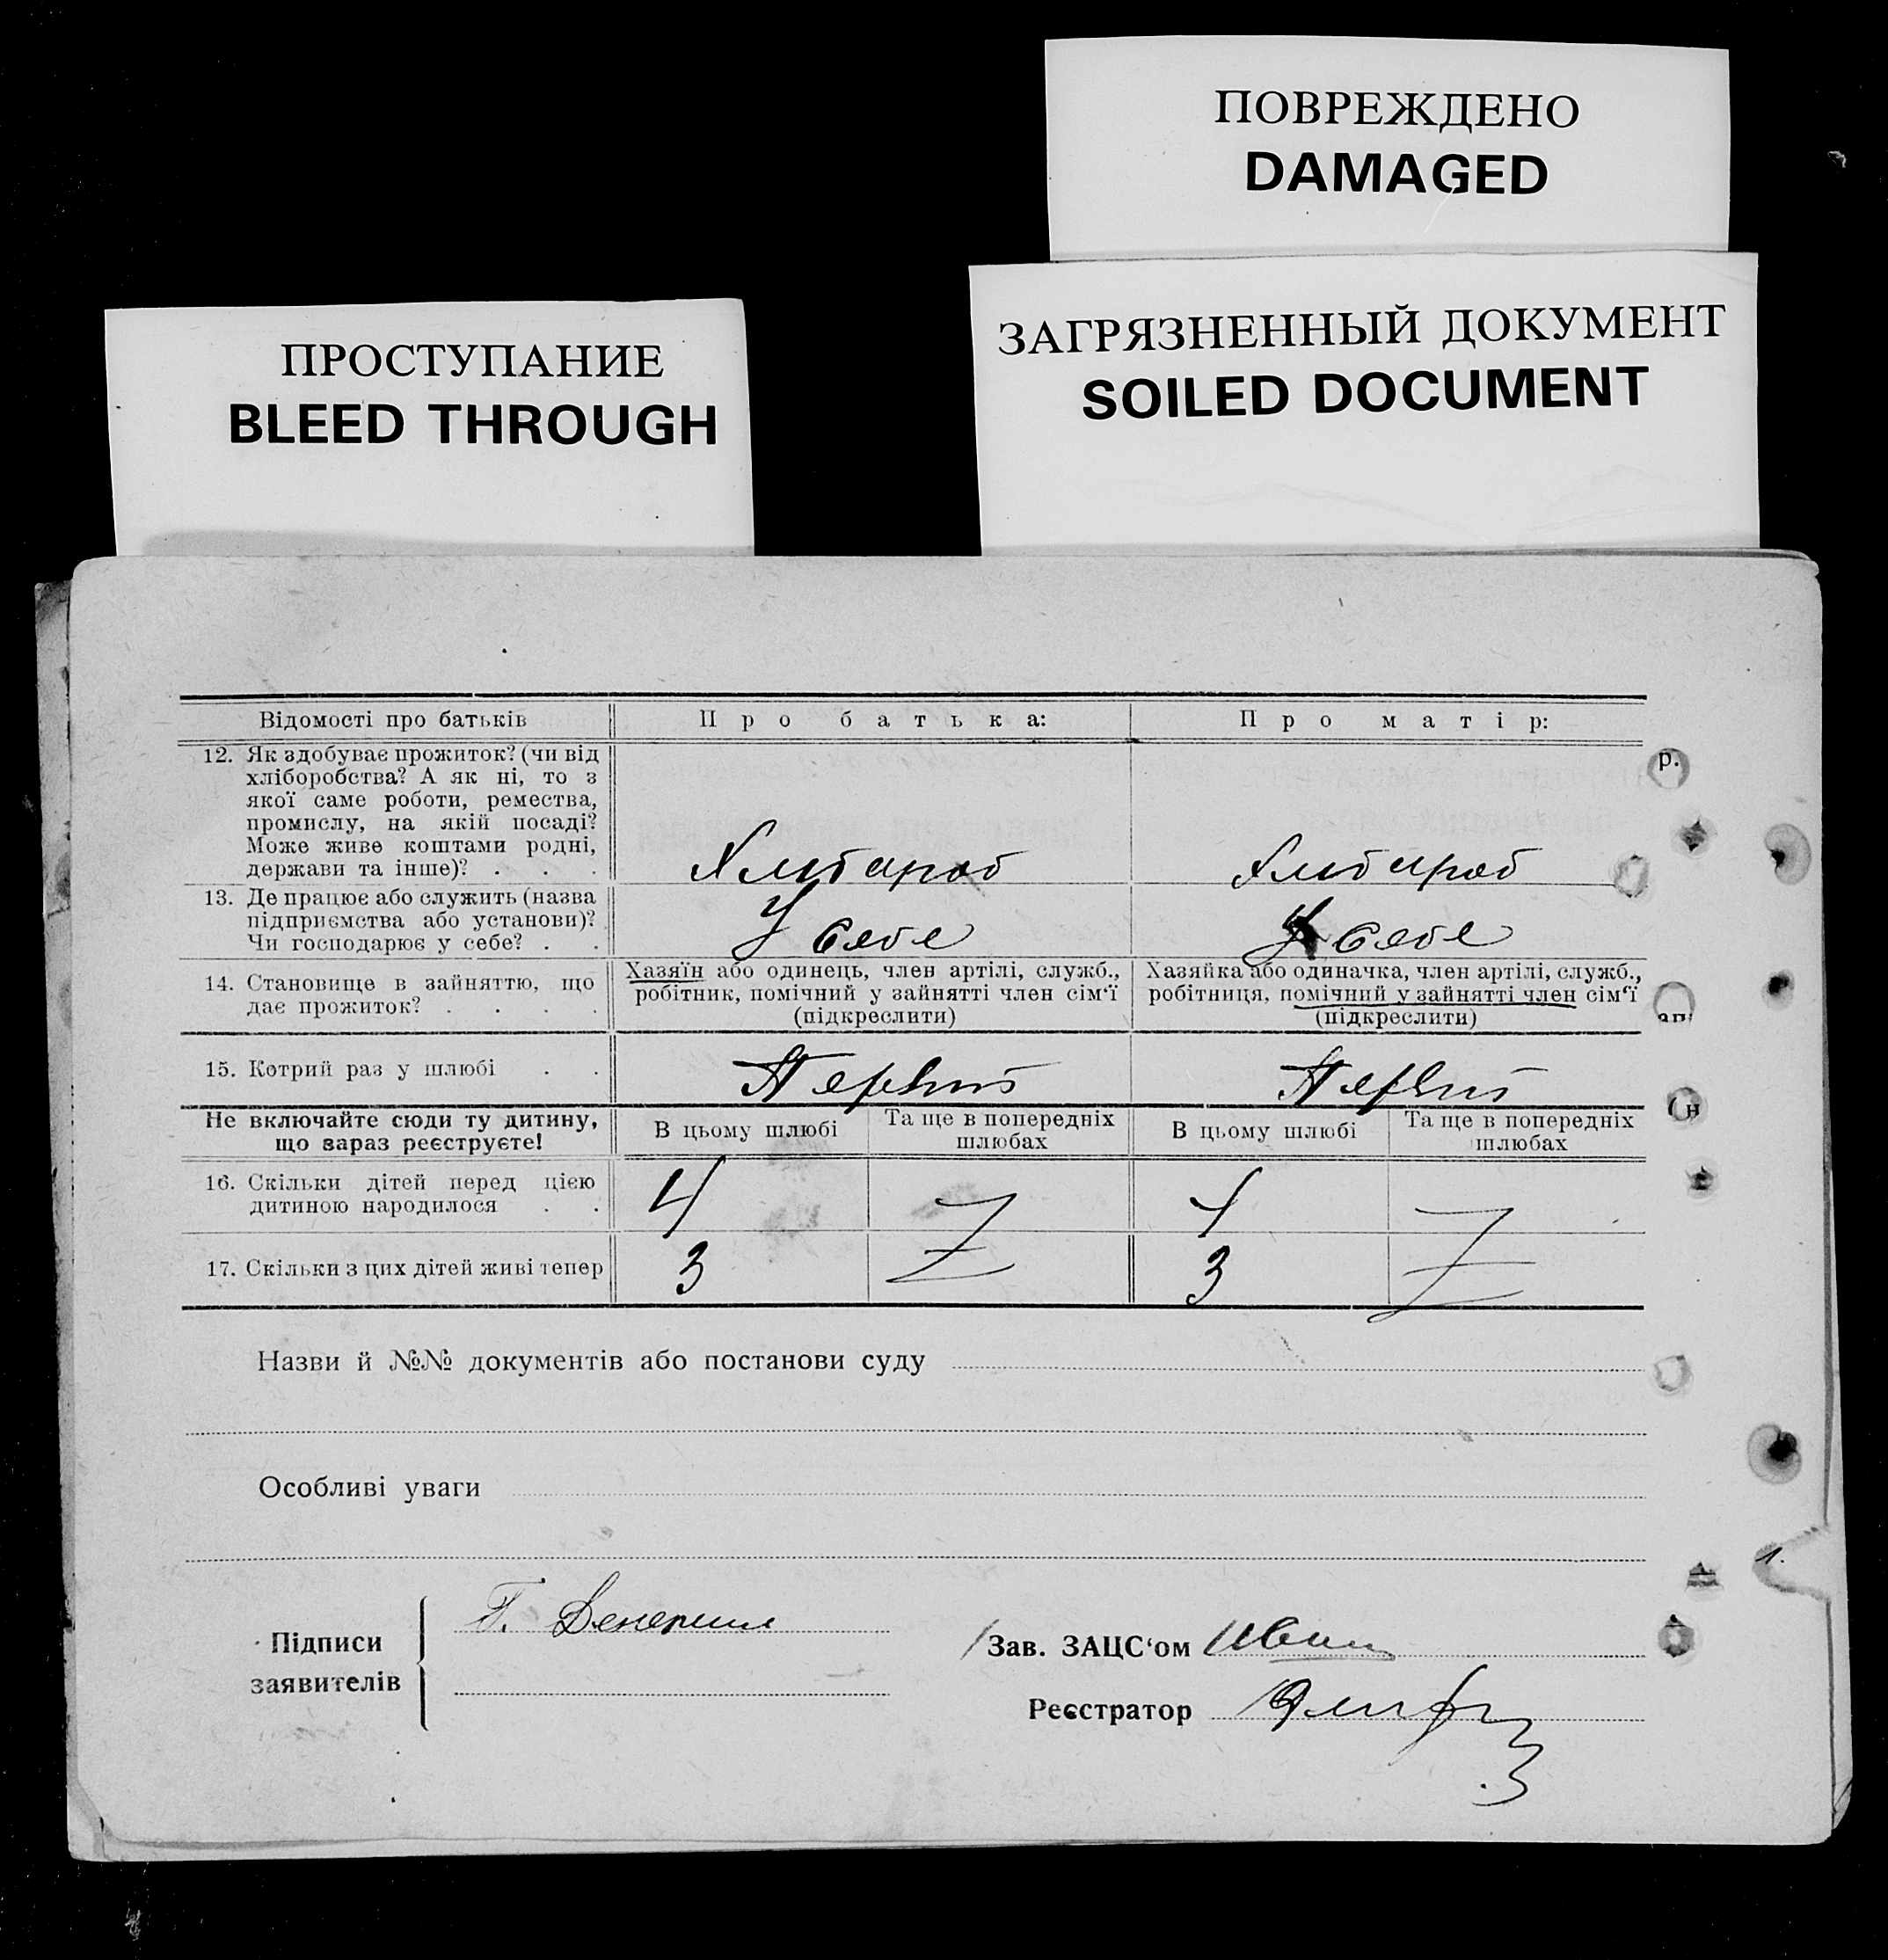 ПОВРЕЖДЕНО
DAMAGED
ЗАГРЯЗНЕННЫЙ ДОКУМЕНТ
SOILED DOCUMENT
ПРОСТУПАНИЕ
BLEED THROUGH
Відомості про батьків
Про батька:
Про матір:
12. Як здобуває прожиток? (чи від
хліборобства? А як ні, то з
якої саме роботи, ремества,
промислу, на якій посаді?
Може живе коштами родні,
держави та інше)? . . .
Хлибароб
Хлибароб
13. Де працює або служить (назва
підприємства або установи)?
Чи господарює у себе? . .
У себе
У себе
14. Становище в зайняттю, що
дає прожиток? . . . .
Хазяїн або одинець, член артілі, служб.,
робітник, помічний у зайнятті член сім‘ї
(підкреслити)
Хазяйка або одиначка, член артілі, служб.,
робітниця, помічний у зайнятті член сім‘ї
(підкреслити)
15. Котрий раз у шлюбі . .
Первий
Первий
Не включайте сюди ту дитину,
що зараз реєструєте!
В цьому шлюбі
Та ще в попередніх
шлюбах
В цьому шлюбі
Та ще в попередніх
шлюбах
16. Скільки дітей перед цією
дитиною народилося . .
4
4
17. Скільки з цих дітей живі тепер
3
3
р.
Назви й №№ документів або постанови суду
Особливі уваги
Підписи
заявителів
Г.
Зав. ЗАЦС‘ом
Реєстратор
1.